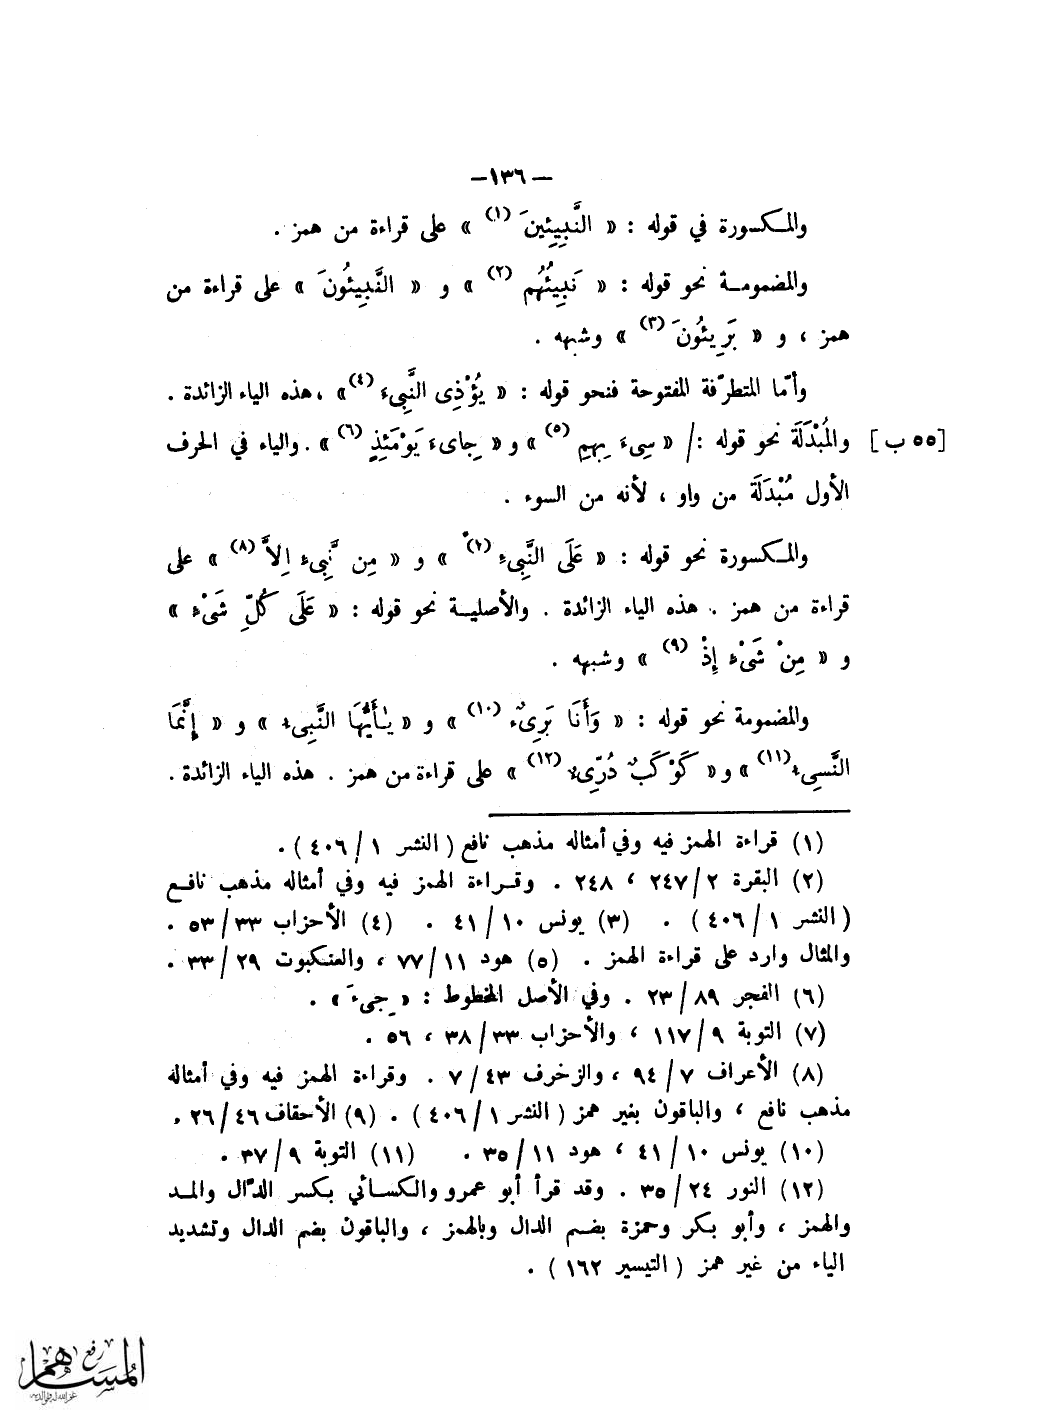 —١٣٦—
والمكسورة في قوله : « النَّبِيئِينَ (١) » على قراءة من همز .
والمضمومة نحو قوله : « نَبِيئُهُم (٢) » و « النَّبِيئُونَ » على قراءة من
همز ، و « بَرِيئُونَ (٣) » وشبهه .
وأمّا المتطرّفة المفتوحة فنحو قوله : « يُؤْذِى النَّبِىءَ (٤) » ، هذه الياء الزائدة .
[٥٥ ب] والمُبْدَلَة نحو قوله :/ « سِىءَ بِهِمِ (٥) » و « جِاىءَ يَوْمَئِذٍ (٦) » . والياء في الحرف
الأول مُبْدَلَة من واو ، لأنه من السوء .
والمكسورة نحو قوله : « عَلَى النَّبِىءِ (٧) » و « مِن نَّبِىءٍ اِلاَّ (٨) » على
قراءة من همز . هذه الياء الزائدة . والأصلية نحو قوله : « عَلَى كُلِّ شَىْءٍ »
و « مِنْ شَىْءٍ إِذْ (٩) » وشبهه .
والمضمومة نحو قوله : « وَأَنَا بَرِىءٌ (١٠) » و « يٰأَيُّهَا النَّبِىءُ » و « إِنَّمَا
النَّسِىءُ (١١) » و « كَوْكَبٌ دُرِّىءٌ (١٢) » على قراءة من همز . هذه الياء الزائدة .
(١) قراءة الهمز فيه وفي أمثاله مذهب نافع ( النشر ١/٤٠٦ ) .
(٢) البقرة ٢/٢٤٧ ، ٢٤٨ . وقراءة الهمز فيه وفي أمثاله مذهب نافع
( النشر ١/٤٠٦ ) . (٣) يونس ١٠/٤١ . (٤) الأحزاب ٣٣/٥٣ .
والمثال وارد على قراءة الهمز . (٥) هود ١١/٧٧ ، والعنكبوت ٢٩/٣٣ .
(٦) الفجر ٨٩/٢٣ . وفي الأصل المخطوط : « جىءَ » .
(٧) التوبة ٩/١١٧ ، والأحزاب ٣٣/٣٨ ، ٥٦ .
(٨) الأعراف ٧/٩٤ ، والزخرف ٤٣/٧ . وقراءة الهمز فيه وفي أمثاله
مذهب نافع ، والباقون بغير همز ( النشر ١/٤٠٦ ) . (٩) الأحقاف ٤٦/٢٦ .
(١٠) يونس ١٠/٤١ ، هود ١١/٣٥ . (١١) التوبة ٩/٣٧ .
(١٢) النور ٢٤/٣٥ . وقد قرأ أبو عمرو والكسائي بكسر الدال والمد
والهمز ، وأبو بكر وحمزة بضم الدال وبالهمز ، والباقون بضم الدال وتشديد
الياء من غير همز ( التيسير ١٦٢ ) .
رفع
المساهم